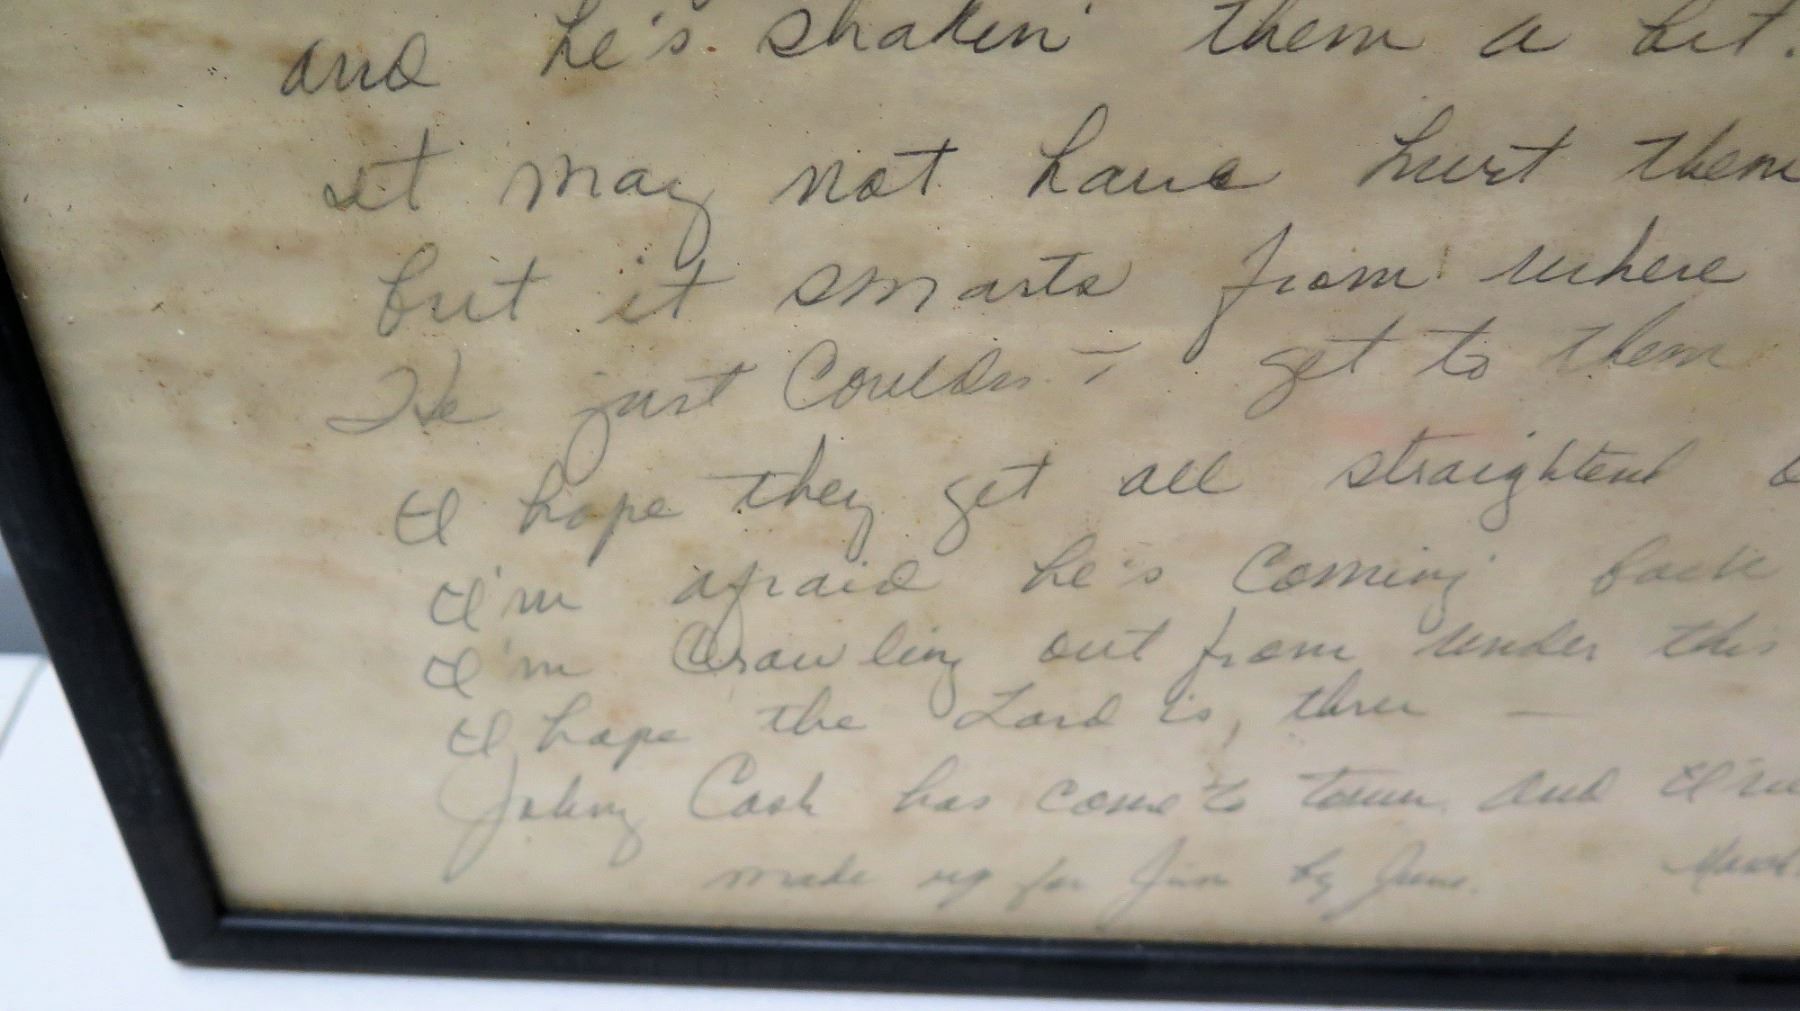 and he's shakin' them a bit.
it may not have hurt them
but it smarts from where
He just Couldn't get to them
I hope they get all straightend
I'm afraid he's Coming back
I'm Crawling out from under this
I hope the Lord is, there —
Johny Cash has come to town and I'm
made up for Jim by June.